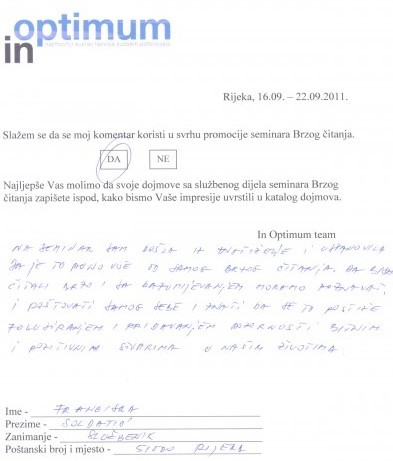 in optimum
Rijeka, 16.09. – 22.09.2011.
Slažem se da se moj komentar koristi u svrhu promocije seminara Brzog čitanja.
DA NE
Najljepše Vas molimo da svoje dojmove sa službenog dijela seminara Brzog
čitanja zapišete ispod, kako bismo Vaše impresije uvrstili u katalog dojmova.
In Optimum team
NA SEMINAR SAM DOŠLA IZ ZNATIŽELJE I USTANOVILA
DA JE TO PUNO VIŠE OD SAMOG BRZOG ČITANJA. DA BISMO
ČITALI BRZO I SA RAZUMIJEVANJEM MORAMO POZNAVATI
I POŠTOVATI SAMOG SEBE I ZNATI DA SE TO POSTIŽE
FOKUSIRANJEM I PRIDAVANJEM VAŽNOSTI BITNIM
I POZITIVNIM STVARIMA U NAŠIM ŽIVOTIMA.
Ime - FRANCISKA
Prezime - SOLDATIĆ
Zanimanje - SLUŽBENIK
Poštanski broj i mjesto - 51000 RIJEKA